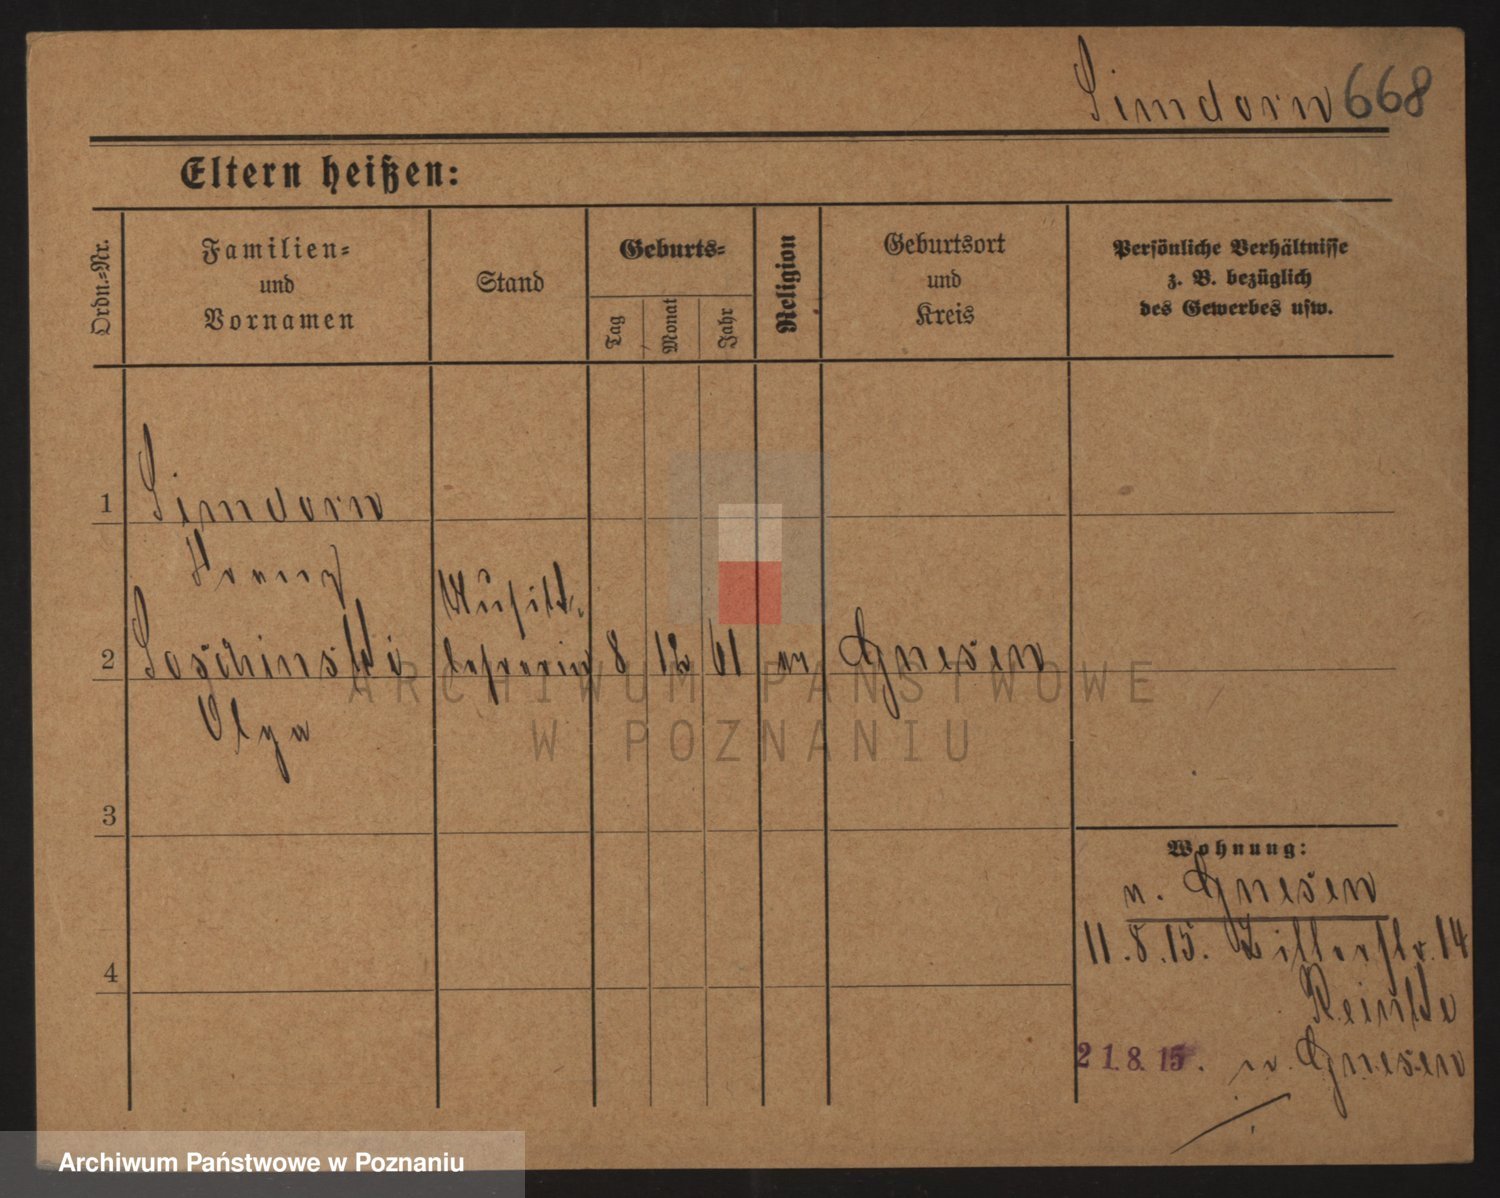 Simdorn 668
Eltern heißen:
Ordn.=Nr.
Familien=
und
Vornamen
Stand
Geburts=
Tag
Monat
Jahr
Religion
Geburtsort
und
Kreis
Persönliche Verhältnisse
z. B. bezüglich
des Gewerbes usw.
1 Simdorn
Franz
2 Soschinski Musikl. lehrerin 8 12 61 ev Gnesen
Olga
3
4
Wohnung:
n. Gnesen
11.8.15. 14
Reinke
21.8.15. n. Gnesen
ARCHIWUM PAŃSTWOWE
W POZNANIU
Archiwum Państwowe w Poznaniu